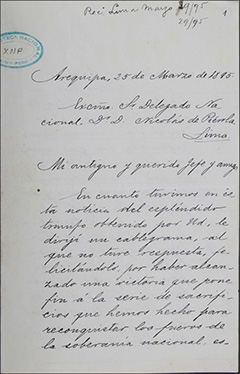 Reci Lima Marzo 29/95
29/95
1
TECA NACIONAL
XNP
Arequipa, 25 de Marzo de 1895.
Excmo. Sr Delegado Na-
cional. Dr. D. Nicolás de Piérola
Lima
Mi antiguo y querido Jefe y amigo
En cuanto tuvimos en és-
ta noticia del espléndido
triunfo obtenido por Ud, le
dirijí un cablegrama, al
que no tuve respuesta, fe-
licitándolo, por haber alcan-
zado una victoria que pone
fin á la serie de sacrifi-
cios que hemos hecho para
reconquistar los fueros de
la soberanía nacional. es-